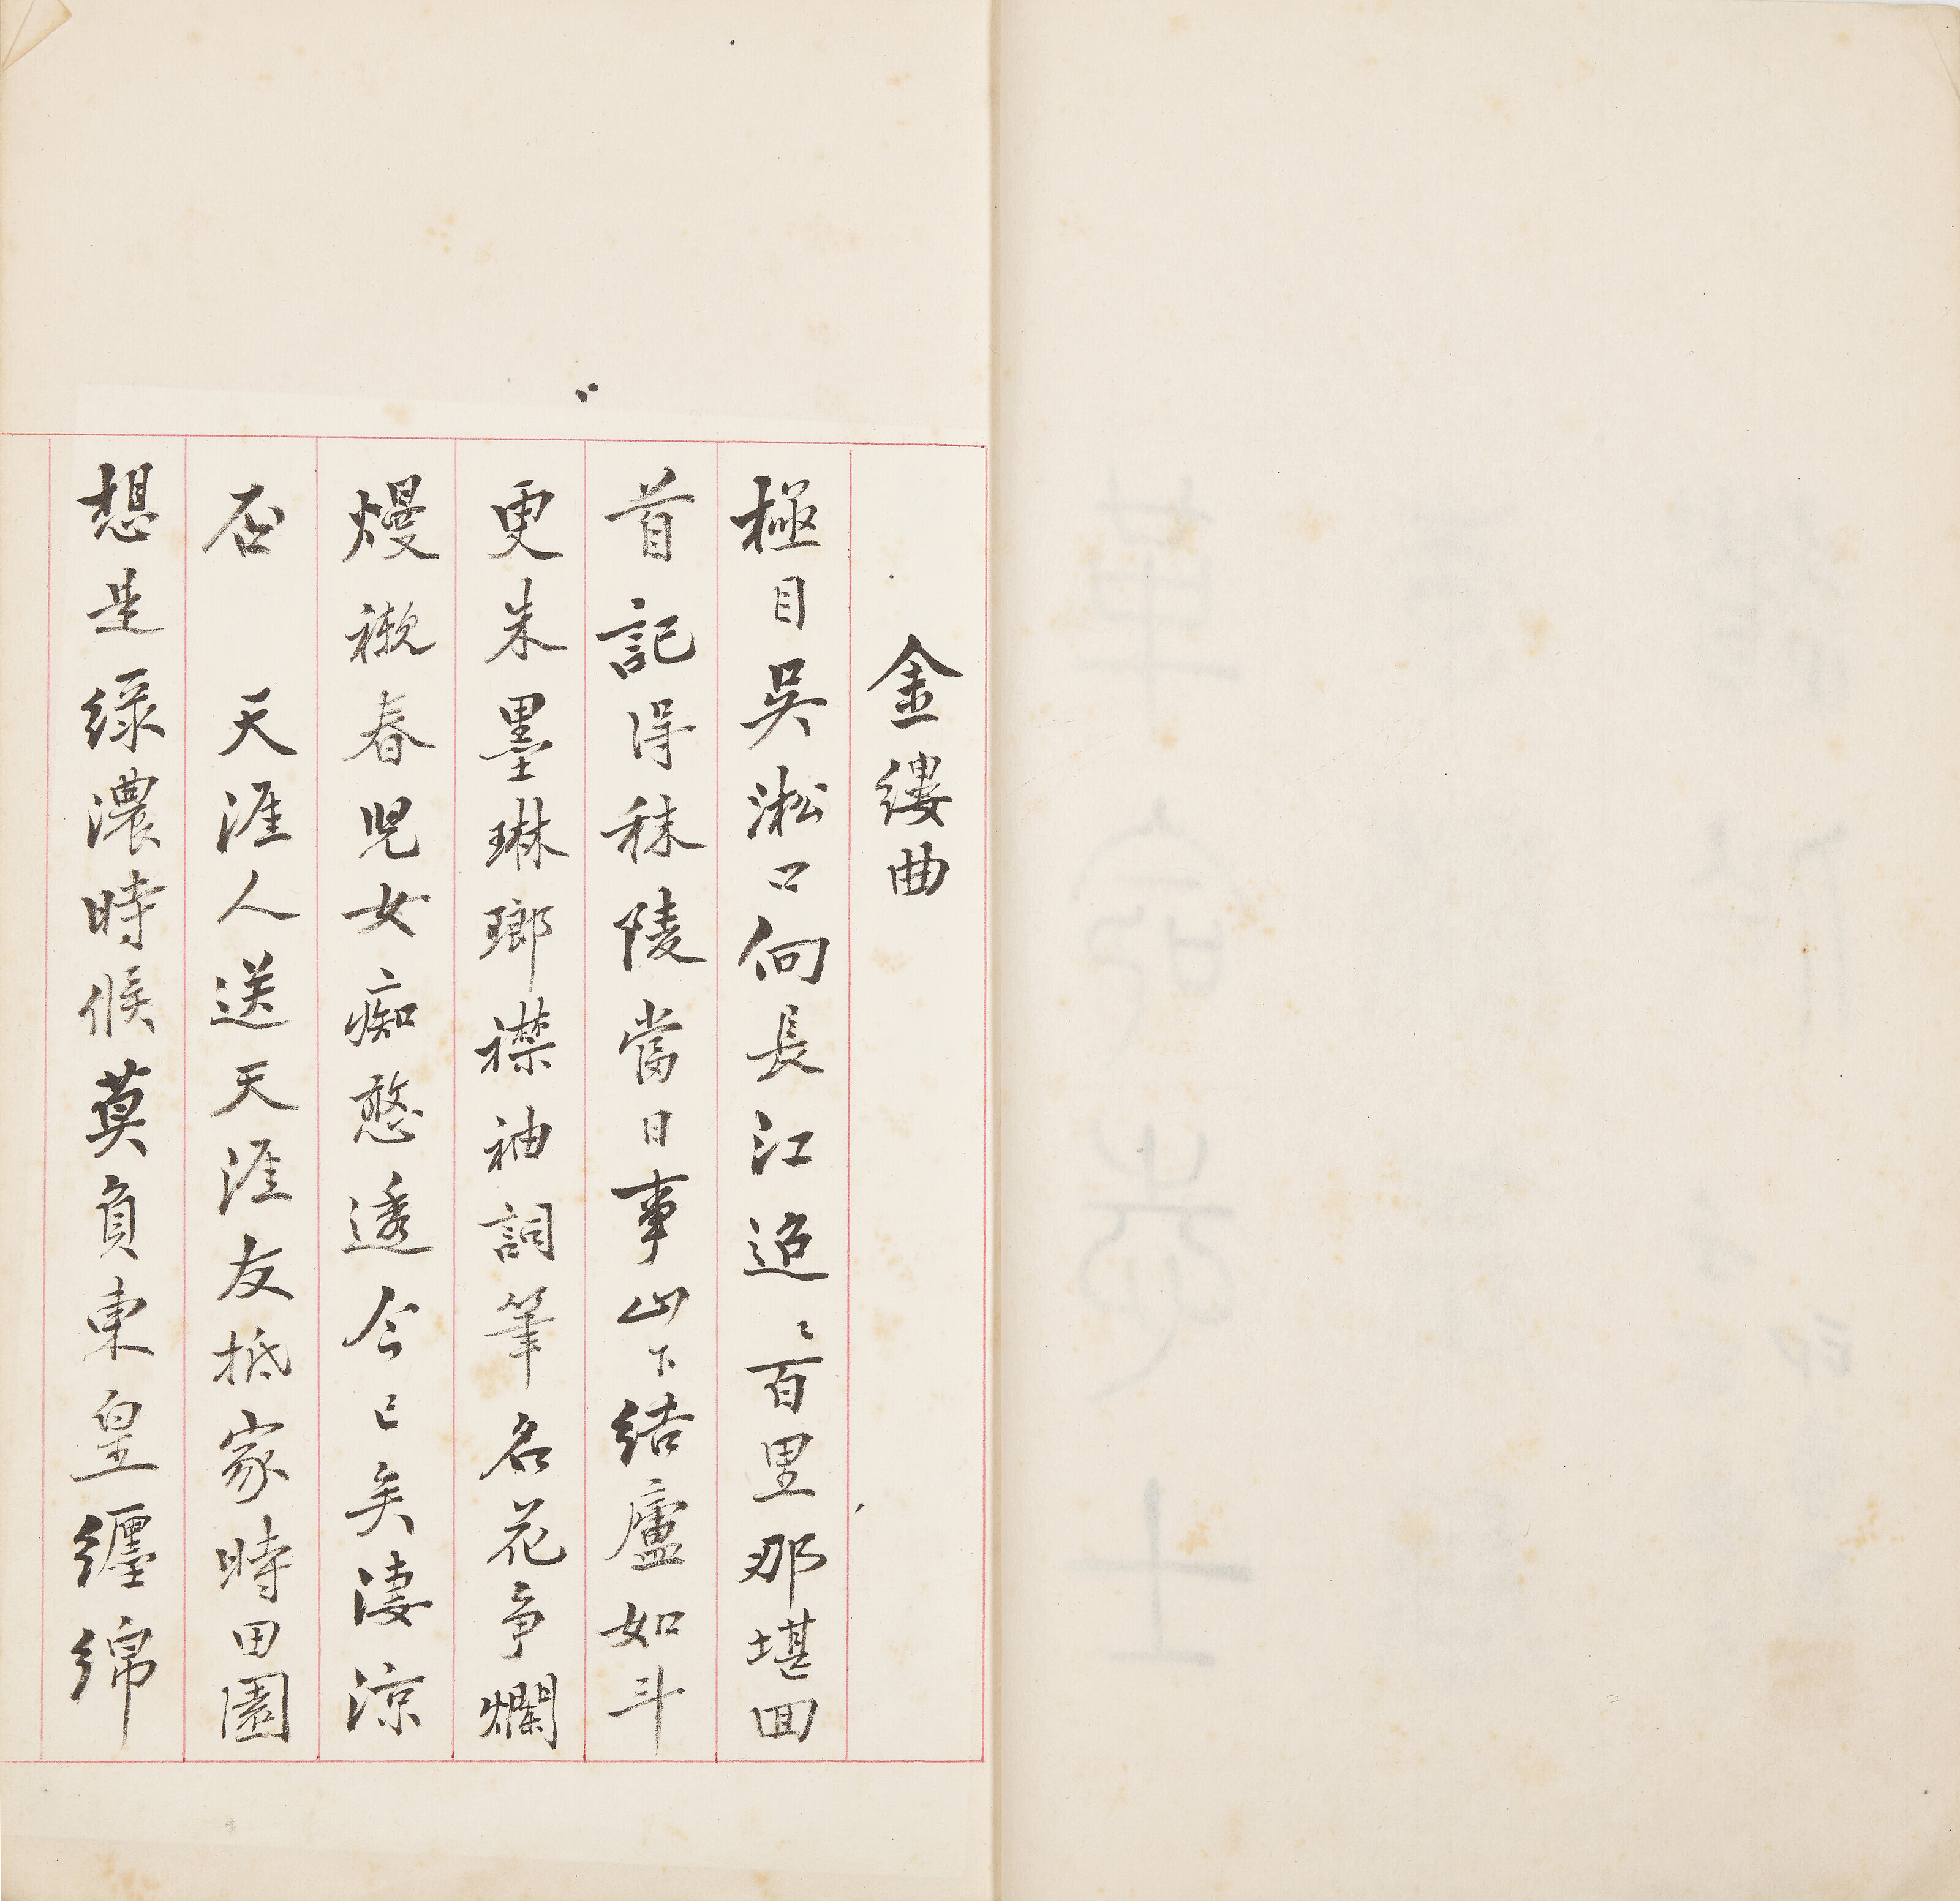 金縷曲
極目吳淞口向長江迢〻百里那堪回
首記得秣陵當日事山下結廬如斗
更朱墨琳瑯襟袖詞筆名花爭爛
熳襯春兒女痴憨透今已矣淒涼
否　天涯人送天涯友抵家時田園
想是綠濃時候莫負東皇纏綿